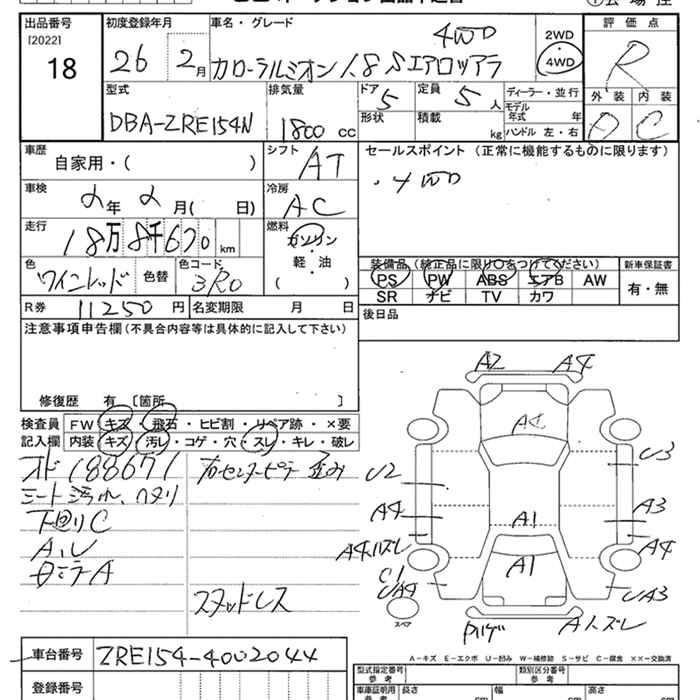 出品番号
[2022]
18
初度登録年月
26 2月
車名・グレード
4WD
カローラルミオン 1.8 S エアロツアラ
2WD
・
4WD
評価点
R
外装 内装
D C
型式
DBA-ZRE154N
排気量
1800 cc
ドア
5
形状
定員
5 人
積載
kg
ディーラー・並行
モデル
年式 年
ハンドル 左・右
車歴
自家用・( )
シフト
AT
セールスポイント (正常に機能するものに限ります)
・4WD
車検
2年 2月( 日)
冷房
AC
走行
18万8千670km
燃料
ガソリン
・
軽・油
( )
色
ワインレッド
色替
色コード
3R0
R券 11250 円
名変期限 月 日
装備品 (純正品に限り○をつけてください)
PS PW ABS エアB AW
SR ナビ TV カワ
新車保証書
有・無
後日品
注意事項申告欄 (不具合内容等は具体的に記入して下さい)
修復歴 有 [箇所 ]
検査員
記入欄
FW キズ・飛石・ヒビ割・リペア跡・×要
内装 キズ・汚レ・コゲ・穴・スレ・キレ・破レ
オド188671
シート汚れ、ヘタリ
下廻りC
A、U
右センターピラー歪み
スタッドレス
A2 A4
U2
A4
A4ハズレ
C1
UA4
A1
A1
U3
A3
A4
UA3
Aハズレ
スペア
A-キズ E-エクボ U-凹み W-補修跡 S-サビ C-腐食 ××-交換済
車台番号 ZRE154-4002044
登録番号
型式指定番号
参考
類別区分番号
参考
車庫証明用
参考
長さ 幅 高さ